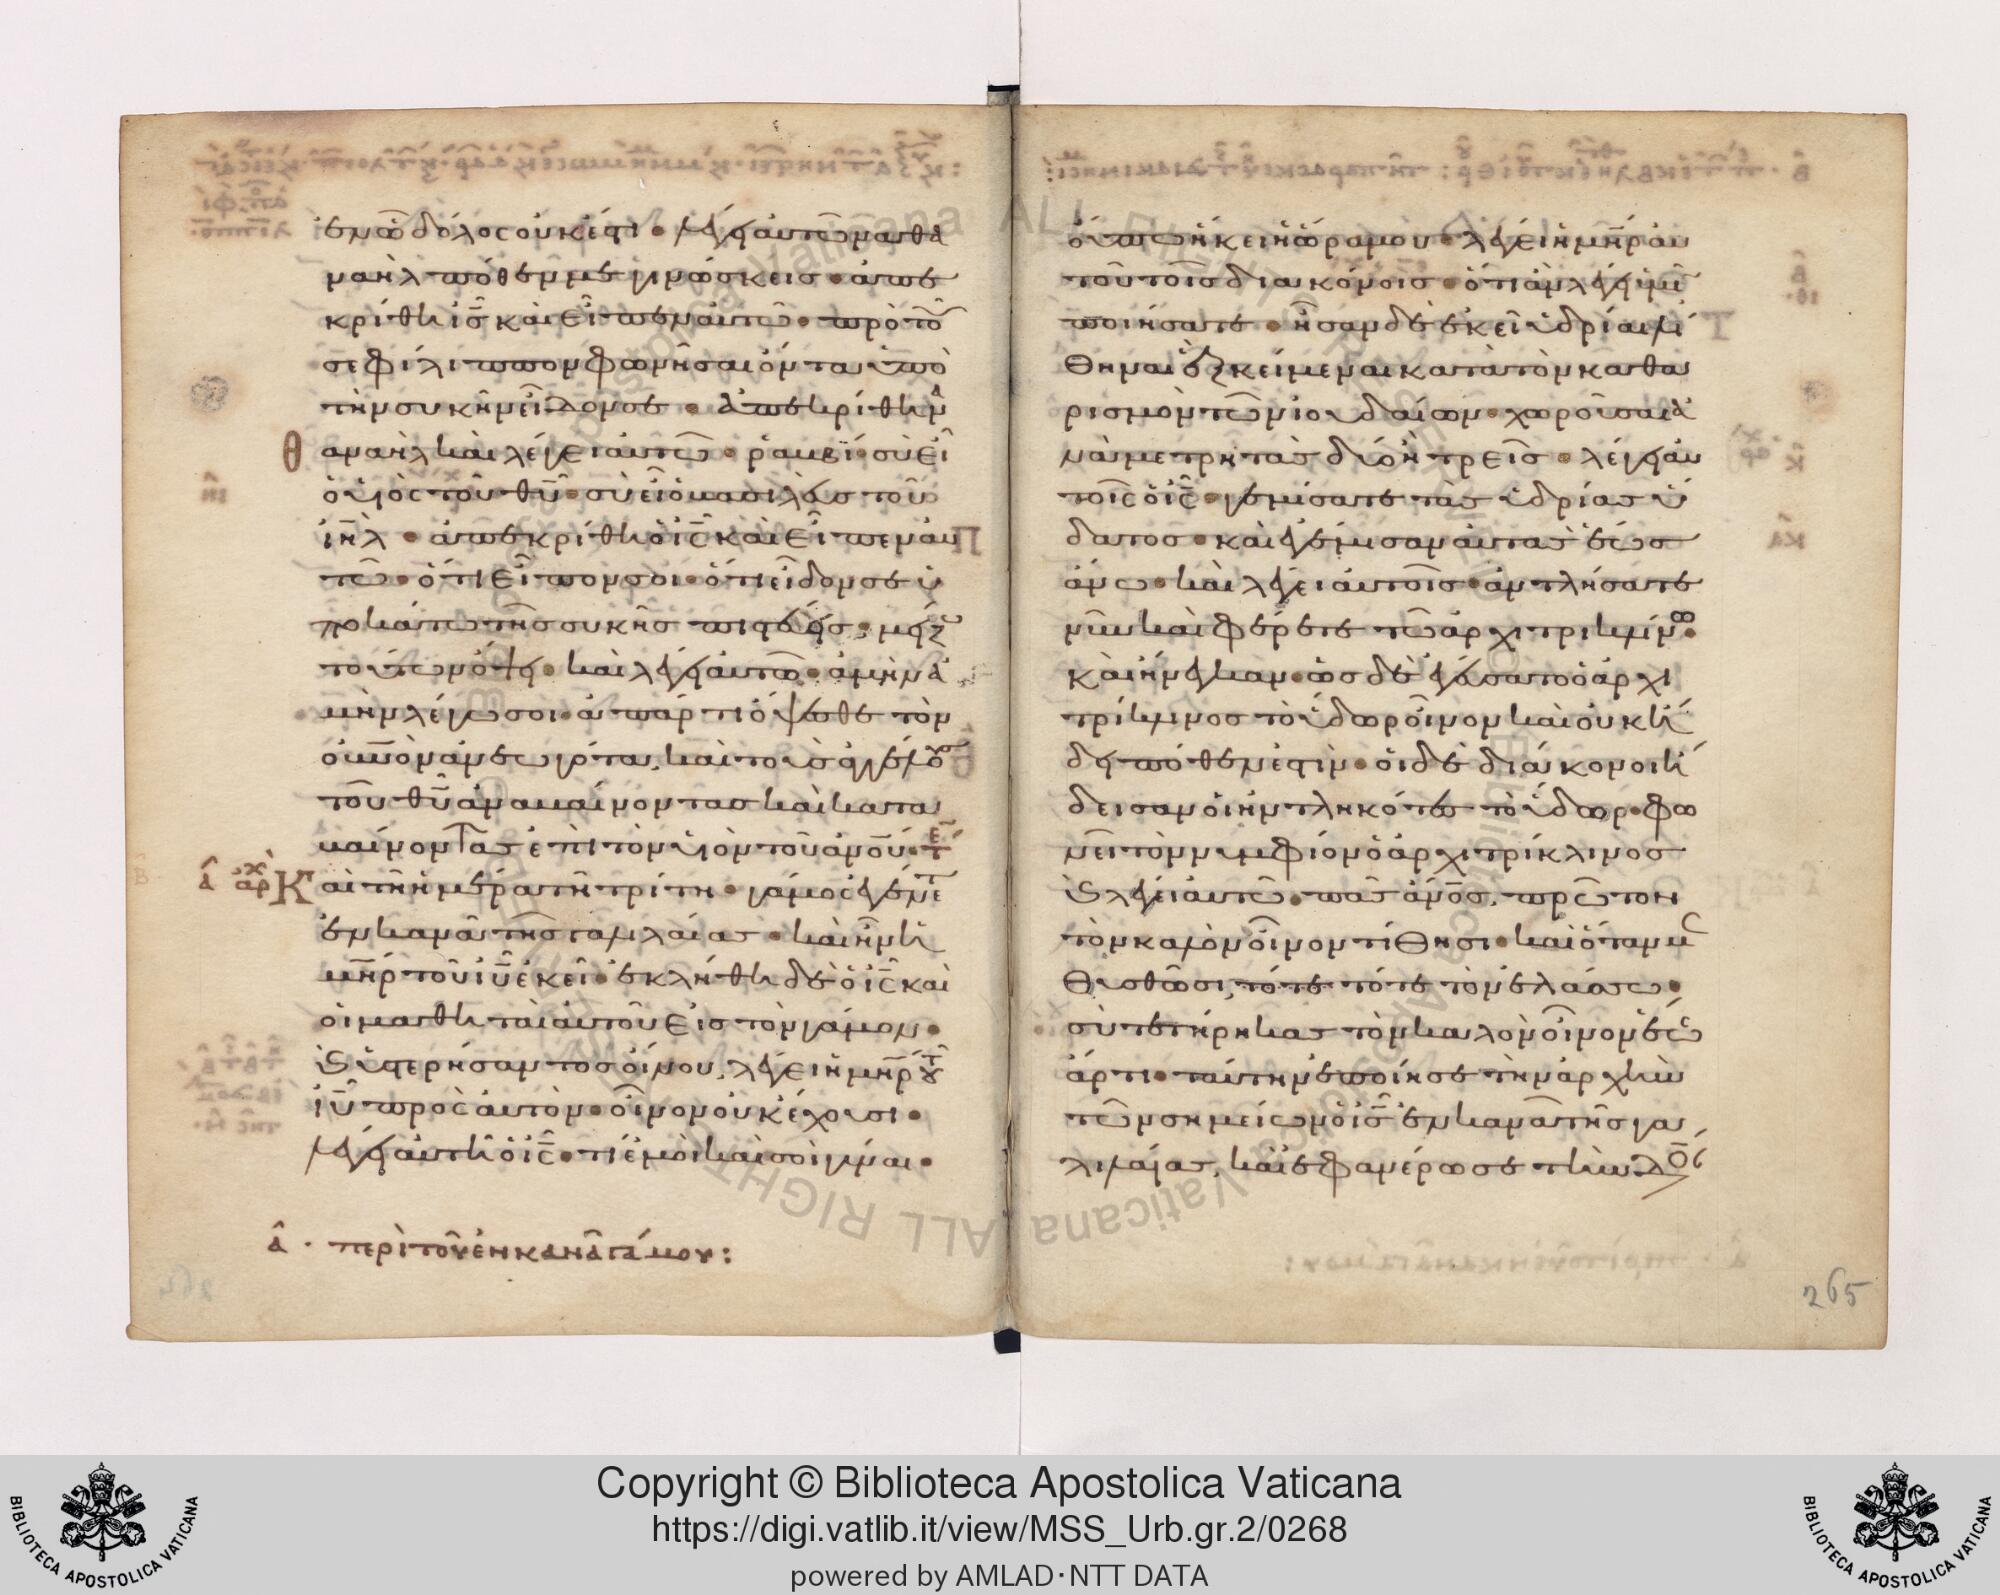 ἐν ὧ δόλος οὐκ ἔστι · λέγει αὐτῶ ναθα
ναὴλ πόθεν με γινώσκεις · ἀπε
κρίθη ἰς̅ καὶ εἶπεν αὐτῶ · πρὸ τοῦ
σε φίλιππον φωνῆσαι ὄντα ὑπὸ
τὴν συκῆν εἶδον σε · ἀπεκρίθη ναθ
αναὴλ καὶ λέγει αὐτῶ · ῥαμβΐ · σὺ εἶ
ὁ υἱὸς τοῦ θυ̅ · σὺ εἶ ὁ βασιλεὺς τοῦ
ἰη̅λ · ἀπεκρίθη ὁ ἰς̅ καὶ εἶπεν αὐ
τῶ · ὅτι εἶπον σοι · ὅτι εἶδον σε ὑ
ποκάτω τῆς συκῆς πιστεύεις · μείζω
τούτων ὄψει · καὶ λέγει αὐτῶ · ἀμὴν ἀ
μὴν λέγω σοι · ἀπάρτι ὄψεσθε τὸν
οὐνὸν ἀνεωγότα, καὶ τοὺς ἀγγέλους
τοῦ θυ̅ ἀναβαίνοντας καὶ κατα
βαίνοντας ἐπὶ τὸν υἱὸν τοῦ ἀνου̅ ·
α̅ ἀρχ Καὶ τῆ ἡμέρα τῆ τρίτη · γάμος ἐγένετ
ἐν κανᾶ τῆς γαλιλαίας · καὶ ἦν ἡ
μη̅ρ τοῦ ἰυ̅ ἐκεῖ · ἐκλήθη δὲ ὁ ἰς̅ καὶ
οἱ μαθηταὶ αὐτοῦ εἰς τὸν γάμον ·
ϗ ὑστερήσαντος οἴνου, λέγει ἡ μη̅ρ τοῦ
ἰυ̅ πρὸς αὐτόν · οἶνον οὐκ ἔχουσι ·
λέγει αὐτῆ ὁ ἰς̅ · τί ἐμοὶ καὶ σοὶ γύναι ·
α̅ · περὶ τοῦ ἐν κανᾶ γάμου :
οὔπω ἥκει ἡ ὥρα μου · λέγει ἡ μη̅ρ αὐ
τοῦ τοῖς διακόνοις · ὅτι ἂν λέγη ὑμῖ
ποιήσατε · ἦσαν δὲ ἐκεῖ ὑδρίαι λί
θιναι ἓξ κείμεναι κατὰ τὸν καθα
ρισμὸν τῶν ἰουδαίων · χωροῦσαι ἀ
νὰ μετρητὰς δύο ἢ τρεῖς · λέγει αὐ
τοῖς ὁ ἰς̅ · γεμίσατε τὰς ὑδρίας ὕ
δατος · καὶ ἐγέμισαν αὐτὰς ἕως
ἄνω · καὶ λέγει αὐτοῖς · ἀντλήσατε
νῦν καὶ φέρετε τῶ ἀρχιτρικλίνω ·
καὶ ἤνεγκαν · ὡς δὲ ἐγεύσατο ὁ ἀρχι
τρίκλινος τὸ ὕδωρ οἶνον καὶ οὐκ ἤ
δει πόθεν ἐστίν · οἱ δὲ διάκονοι ἤ
δεισαν οἱ ἠντληκότες τὸ ὕδωρ · φω
νεῖ τὸν νυμφίον ὁ ἀρχιτρίκλινος
ϗ λέγει αὐτῶ · πᾶς ἄνο̅ς, πρῶτον
τὸν καλὸν οἶνον τίθησι · καὶ ὅταν με
θυσθῶσι, τότε τότε τὸν ἐλάσσω ·
σὺ τετήρηκας τὸν καλὸν οἶνον ἕως
ἄρτι · ταύτην ἐποίησε τὴν ἀρχὴν
τῶν σημείων ὁ ἰς̅ ἐν κανᾶ τῆς γα
λιλαίας, καὶ ἐφανέρωσε τὴν δόξ
265
Copyright © Biblioteca Apostolica Vaticana
https://digi.vatlib.it/view/MSS_Urb.gr.2/0268
powered by AMLAD·NTT DATA
BIBLIOTECA APOSTOLICA VATICANA
BIBLIOTECA APOSTOLICA VATICANA